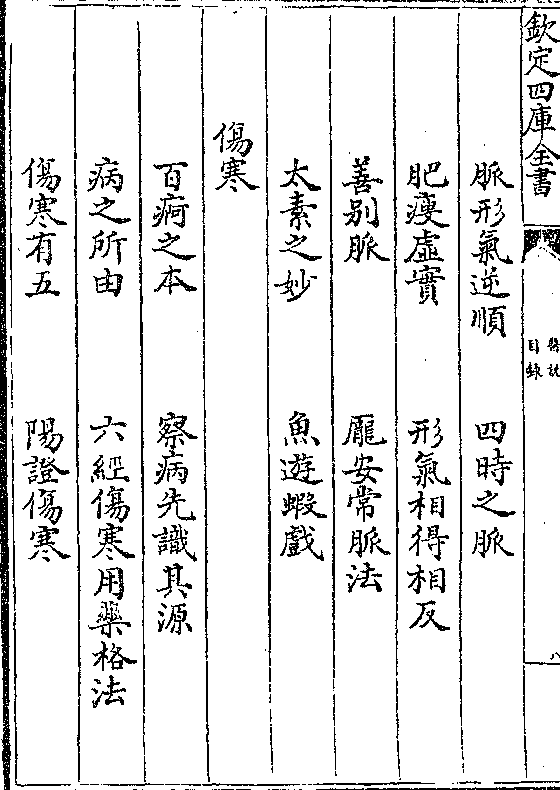 欽定四庫全書
醫説
目錄
八
脈形氣逆順　四時之脈
肥瘦虛實　形氣相得相反
善别脈　龎安常脈法
太素之妙　魚遊蝦戲
傷寒
百痾之本　察病先識其源
病之所由　六經傷寒用藥格法
傷寒有五　陽證傷寒